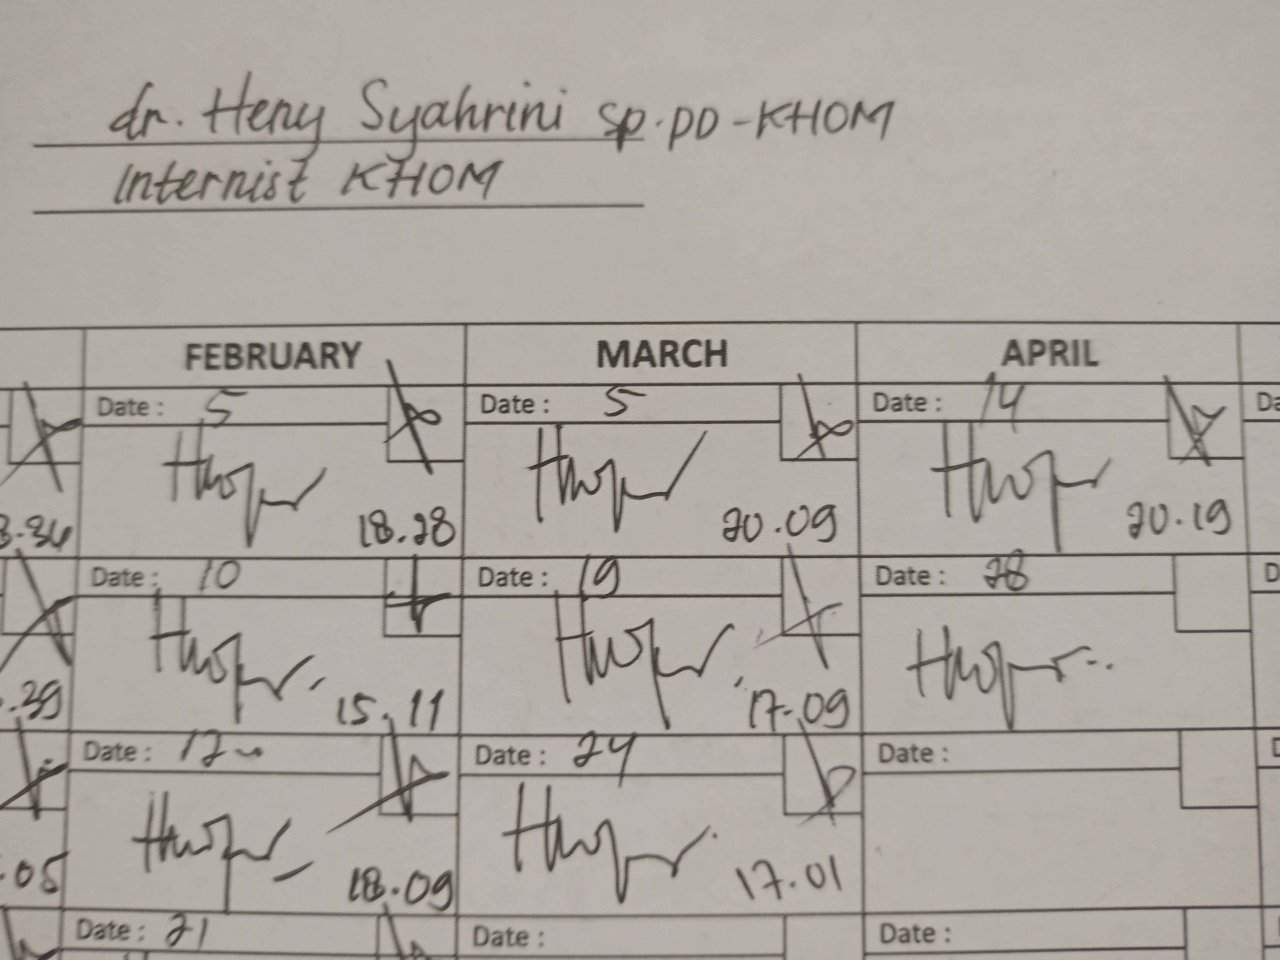 dr. Heny Syahrini Sp.PD-KHOM
Internist KHOM
FEBRUARY MARCH APRIL
Date : 5 Date : 5 Date : 14
18.28 20.09 20.19
Date : 10 Date : 19 Date : 28
.39 15.11 17.09
Date : 12 Date : 24 Date :
.05 18.09 17.01
Date : 21 Date : Date :